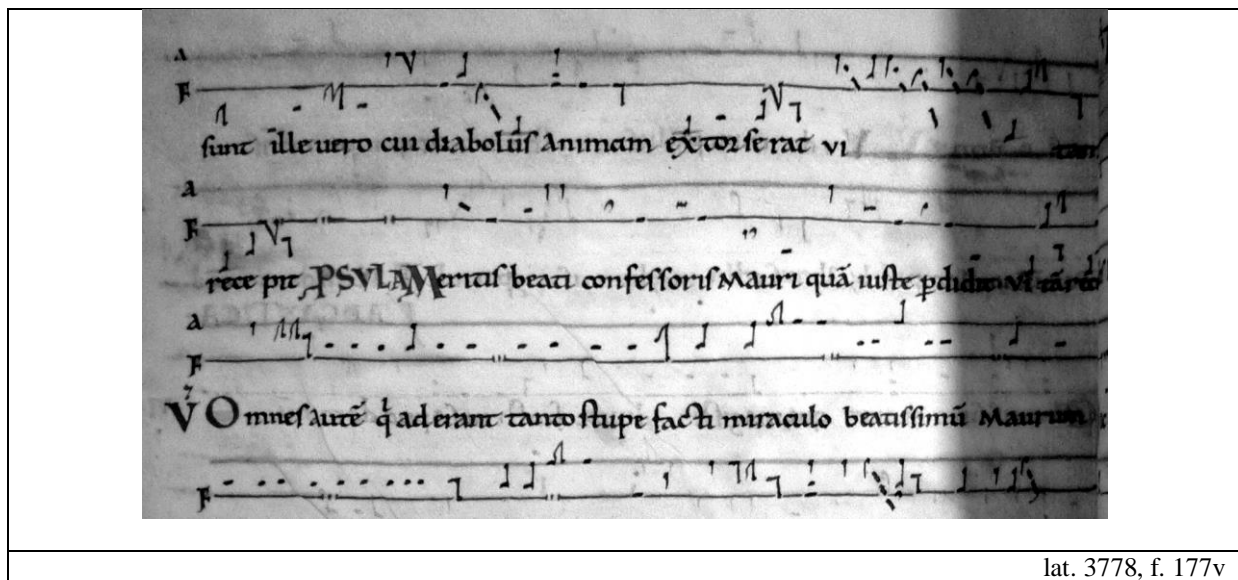 a
F
sunt ille uero cui diabolus animam extorserat vi tam
a
F
rece pit PSVLA Meritis beati confessoris Mauri quā iuste pdidit
a
F
V Omnes autē q ad erant tanto stupe facti miraculo beatissimū Maurum
F
lat. 3778, f. 177v